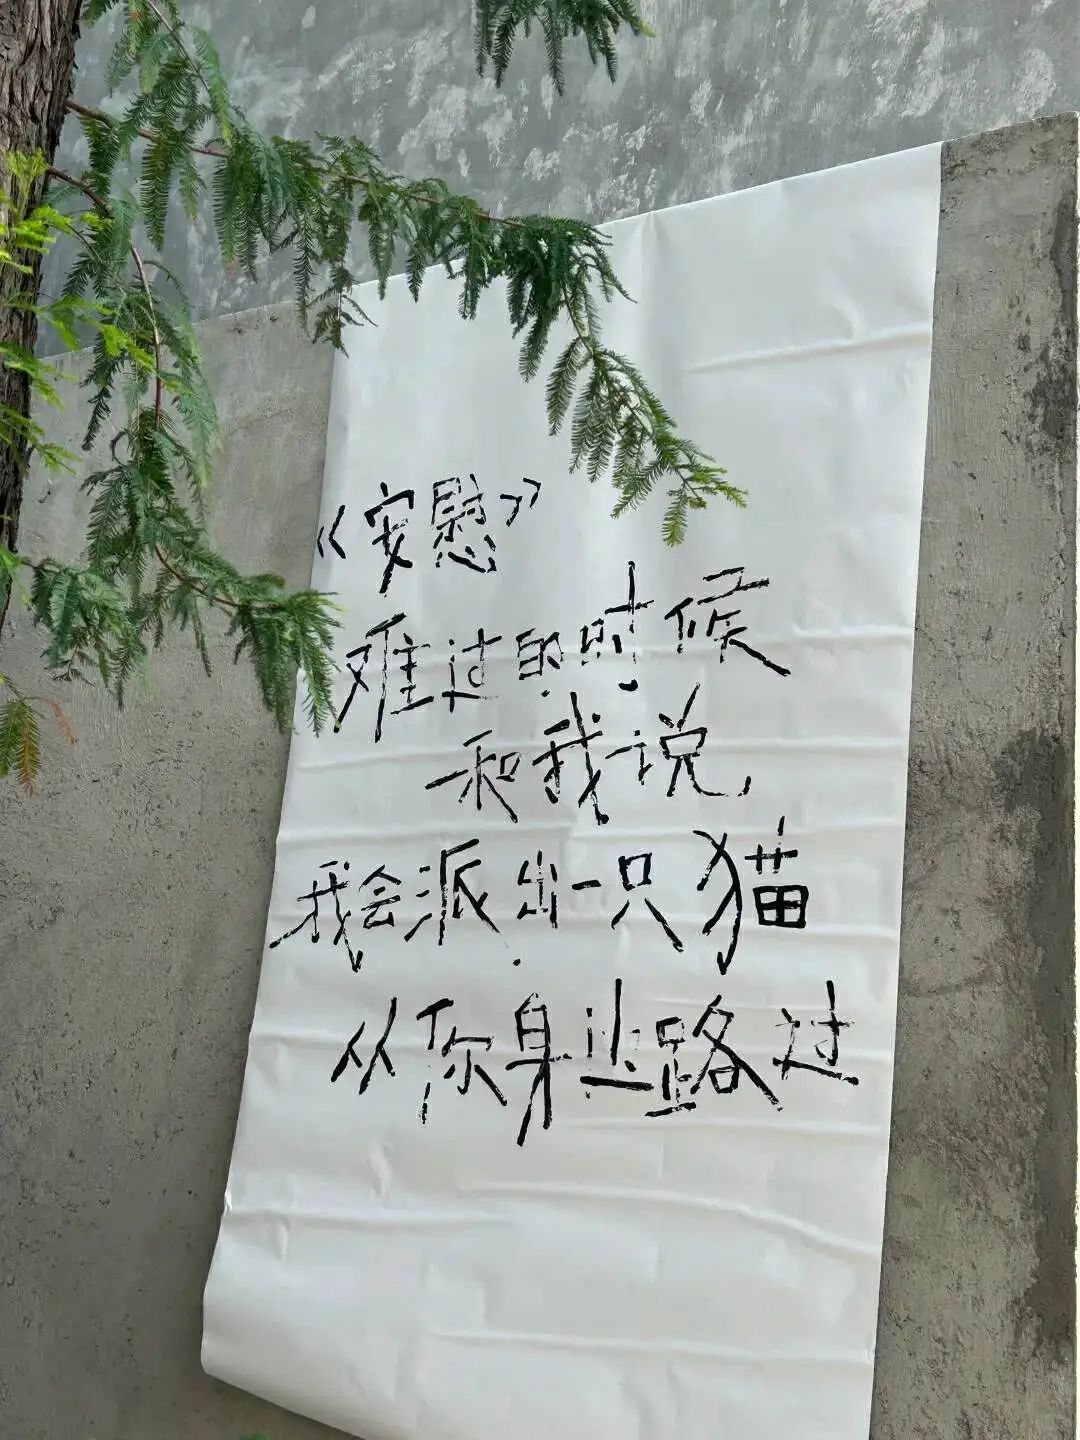 《安慰》
难过的时候
和我说，
我会派出一只猫
从你身边路过